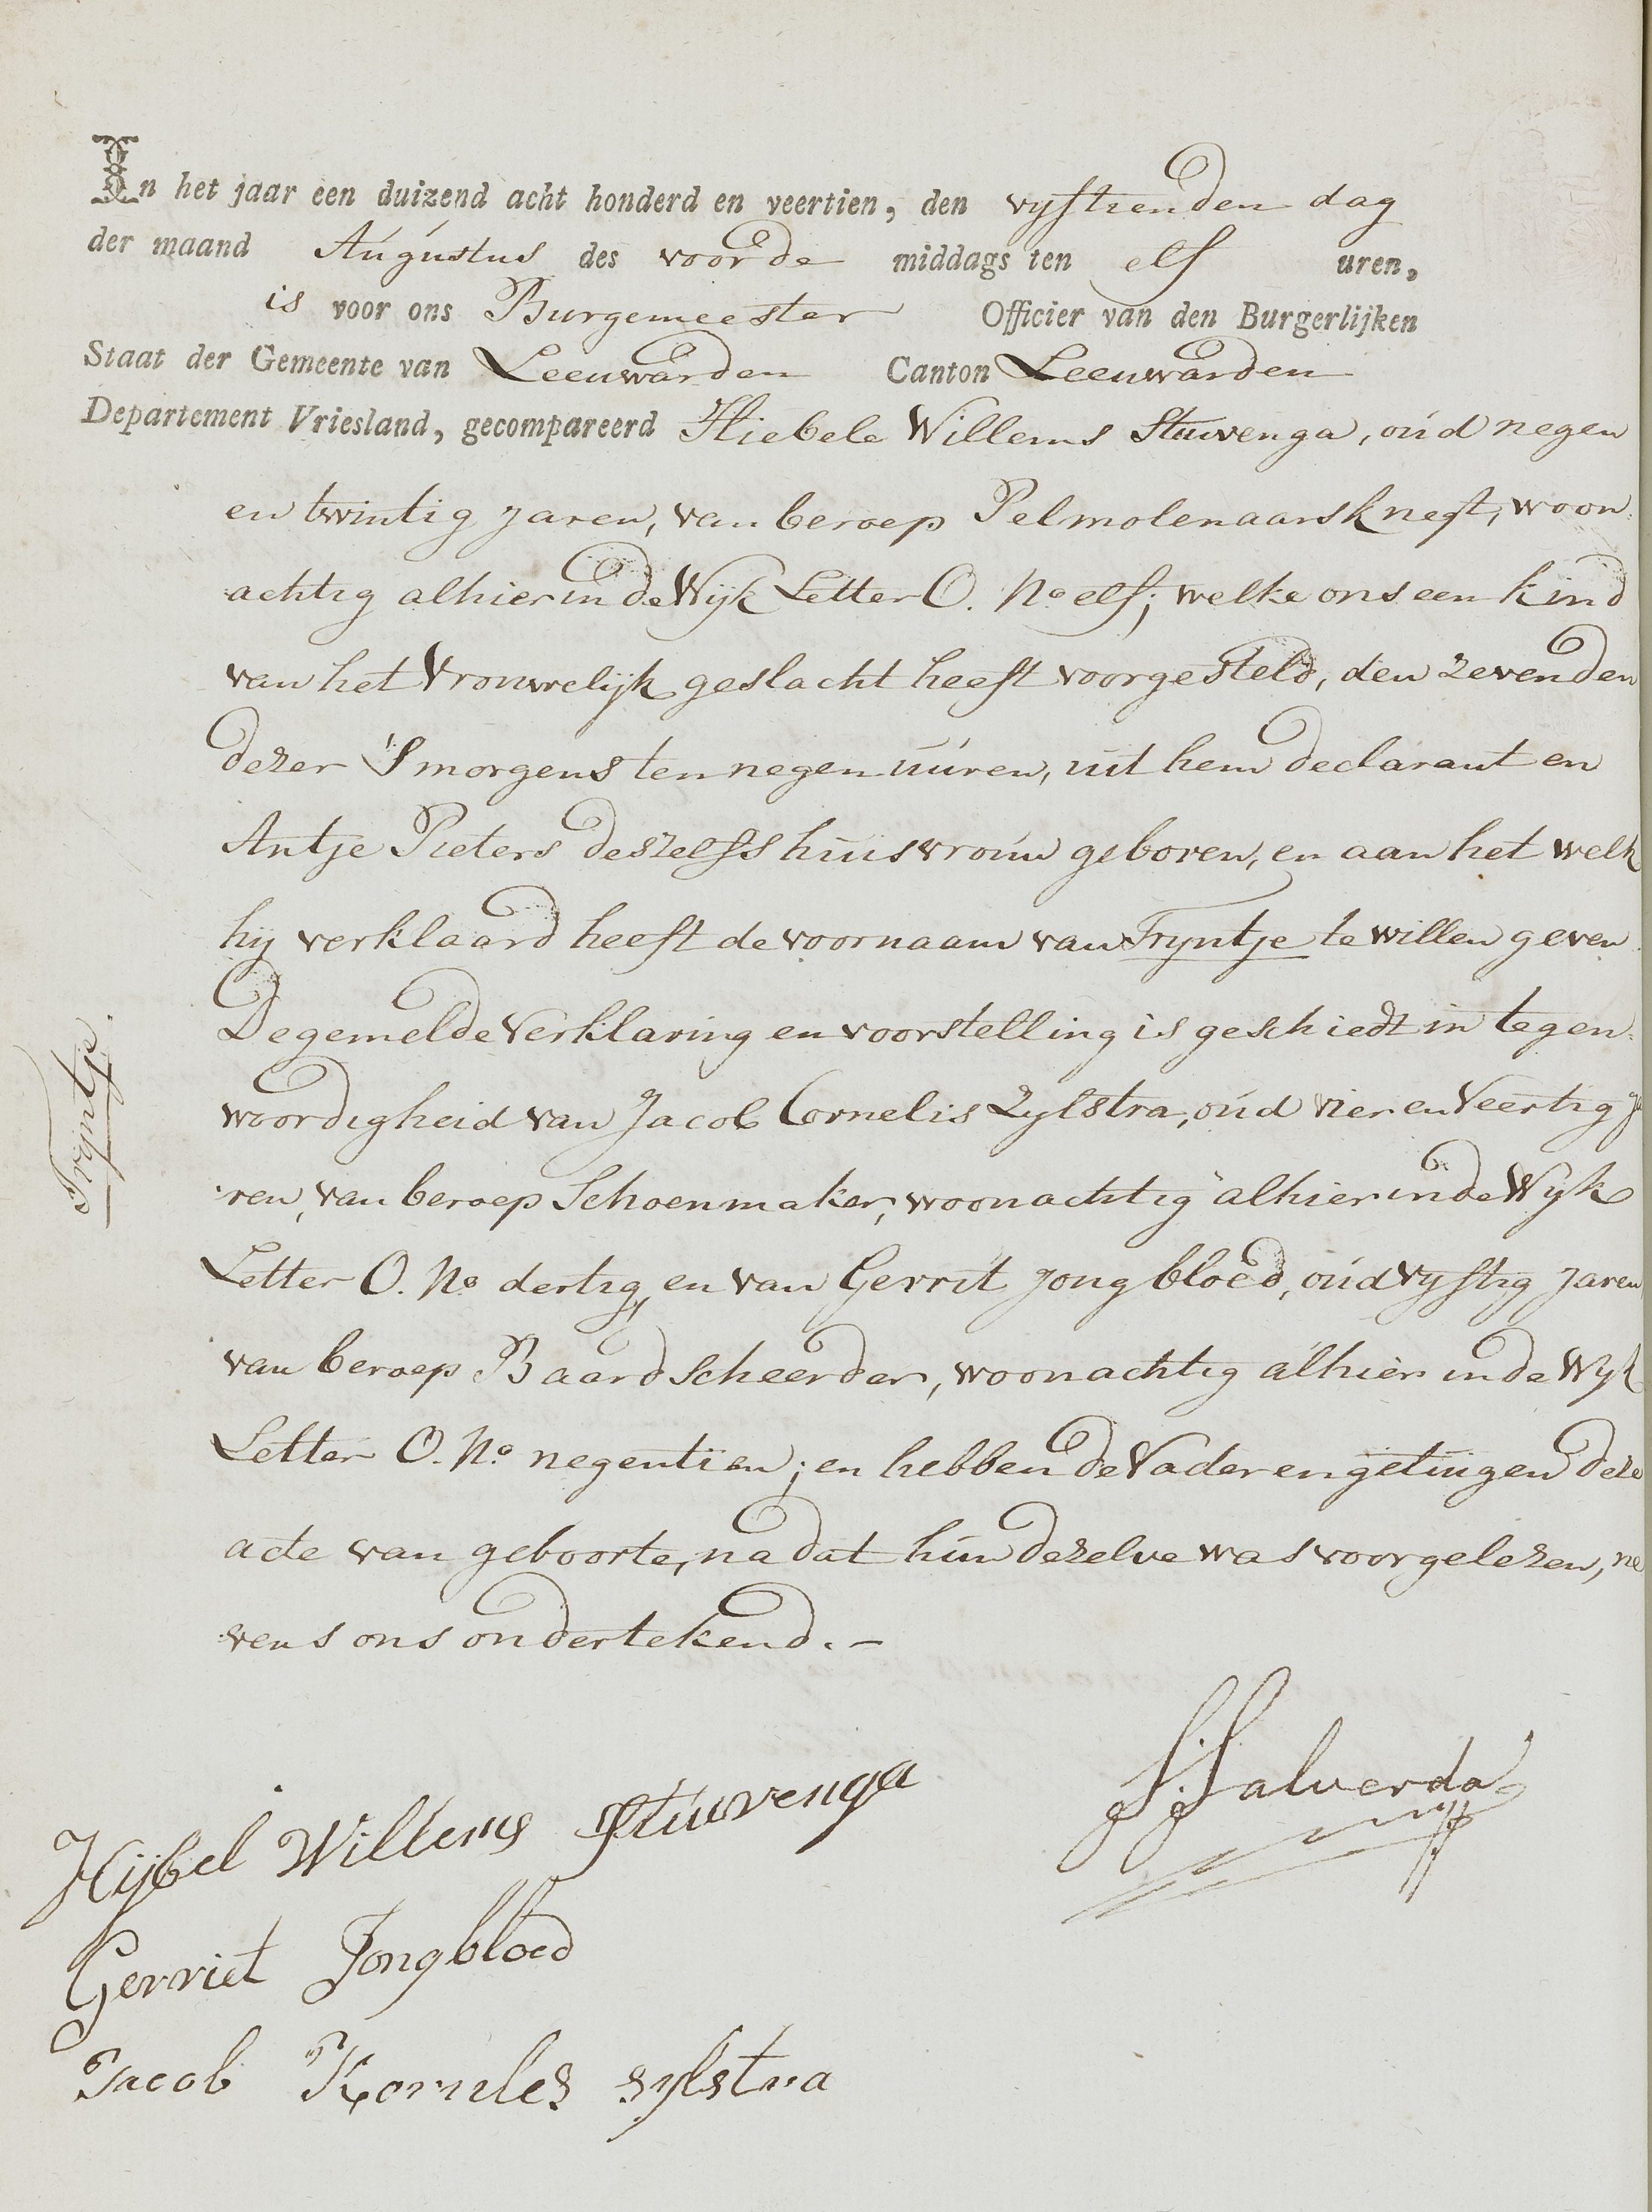 In het jaar een duizend acht honderd en veertien, den vyftienden dag
der maand Augustus des voorde middags ten elf uren,
is voor ons Burgemeester Officier van den Burgerlijken
Staat der Gemeente van Leeuwarden Canton Leeuwarden
Departement Vriesland, gecompareerd Hiebele Willems Stuvenga, oud negen
en twintig jaren, van beroep Pelmolenaarsknegt, woon
achtig alhier in de Wijk Letter O. No elf; welke ons een kind
van het Vrouwelijk geslacht heeft voorgesteld, den zevenden
dezer 's morgens ten negen uuren, uit hem declarant en
Antje Pieters deszelfs huisvrouw geboren, en aan het welk
hij verklaard heeft de voornaam van Tryntje te willen geven
De gemelde Verklaring en voorstelling is geschiedt in tegen
woordigheid van Jacob Cornelis Zylstra, oud vier en Veertig ja
ren, van beroep Schoenmaker, woonachtig alhier in de Wijk
Letter O. No dertig, en van Gerrit Jongbloed, oud vyftig jaren
van beroep Baardscheerder, woonachtig alhier in de Wyk
Letter O. No negentien; en hebben de Vader en getuigen deze
acte van geboorte, na dat hun dezelve was voorgelezen, ne
vens ons ondertekend. -
Trijntje.
S. Salverda
Hijbel Willems Stuvenga
Gerriet Jongbloed
Jacob Korneles sylstra